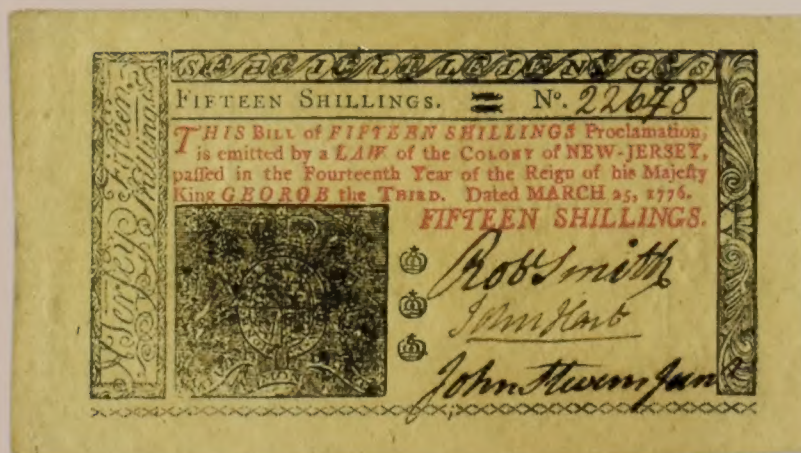 A Jersey Fifteen Shillings
FIFTEEN SHILLINGS. No. 22678
THIS BILL of FIFTEEN SHILLINGS Proclamation,
is emitted by a LAW of the COLONY of NEW-JERSEY,
paſſed in the Fourteenth Year of the Reign of his Majeſty
King GEORGE the THIRD. Dated MARCH 25, 1776.
FIFTEEN SHILLINGS.
Robt Smith
John Hart
John Stevens Junr